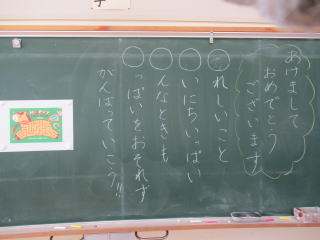 あけまして
おめでとう
ございます
○れしいこと
○いにちいっぱい
○んなときも
○っぱいをおそれず
がんばっていこう!!